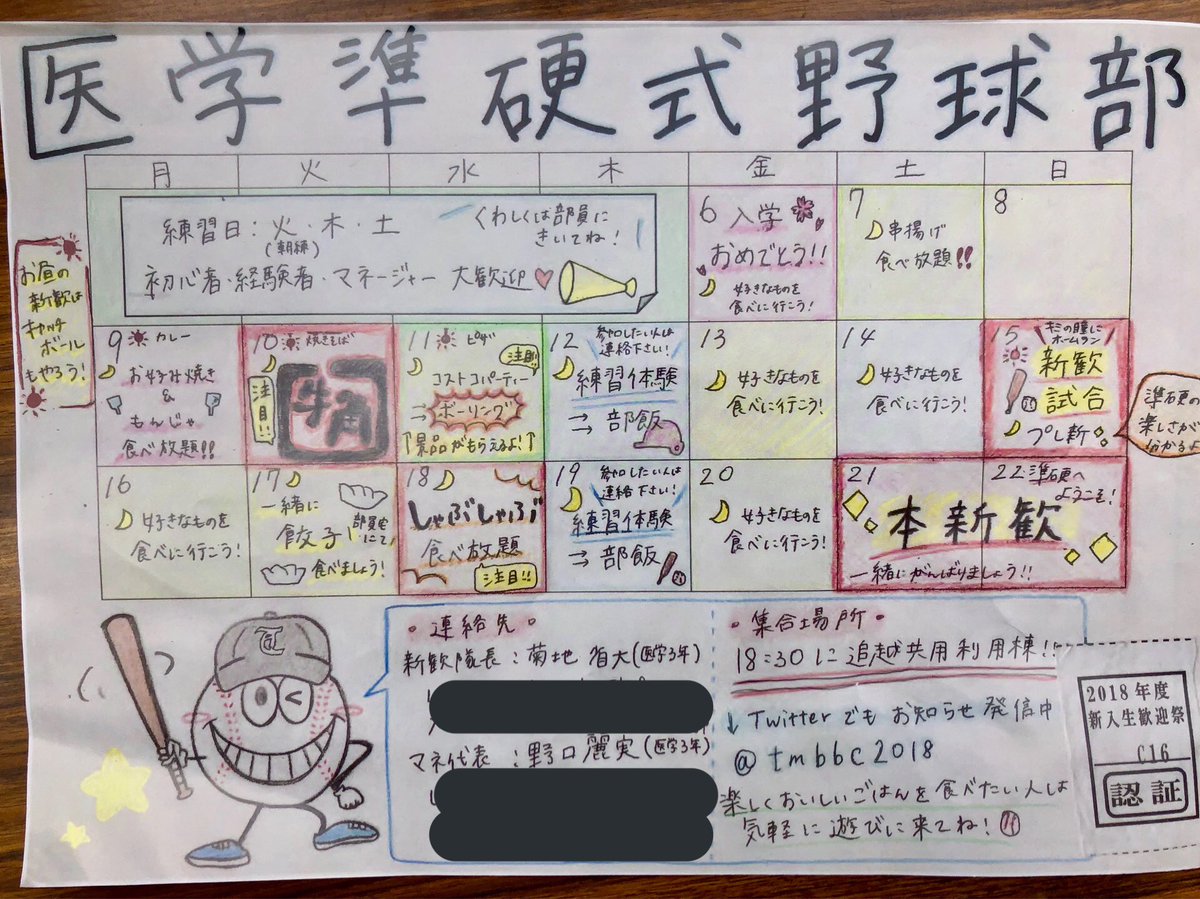 医学準硬式野球部
月 火 水 木 金 土 日
練習日:火・木・土
(朝練)
くわしくは部員に
きいてね!
初心者・経験者・マネージャー 大歓迎
お昼の
新歓は
キャッチ
ボール
もやろう!
6 入学
おめでとう!!
好きなものを
食べに行こう!
7
串揚げ
食べ放題!!
8
9 カレー
お好み焼き
&
もんじゃ
食べ放題!!
10 焼きそば
注目!!
牛角
11 ピザ
注目!!
コストコパーティー
⇒ボーリング
↑景品がもらえるよ!↑
12 参加したい人は
連絡下さい!
練習体験
→部飯
13
好きなものを
食べに行こう!
14
好きなものを
食べに行こう!
15 その瞳に
ホームラン
新歓
試合
プレ新
準硬の
楽しさが
分かるよ
16
好きなものを
食べに行こう!
17
一緒に
餃子
部室にて!
食べましょう!
18
しゃぶしゃぶ
食べ放題
注目!!
19 参加したい人は
連絡下さい!
練習体験
→部飯
20
好きなものを
食べに行こう!
21 22 準硬へ
ようこそ!
本新歓
一緒にがんばりましょう!!
・連絡先・
新歓隊長:菊地 省大(医学3年)
マネ代表:野口麗実(医学3年)
・集合場所・
18:30に追越共用利用棟!!
↓Twitterでもお知らせ発信中
@tmbbc2018
楽しくおいしいごはんを食べたい人は
気軽に遊びに来てね!
2018年度
新入生歓迎祭
C16
認証